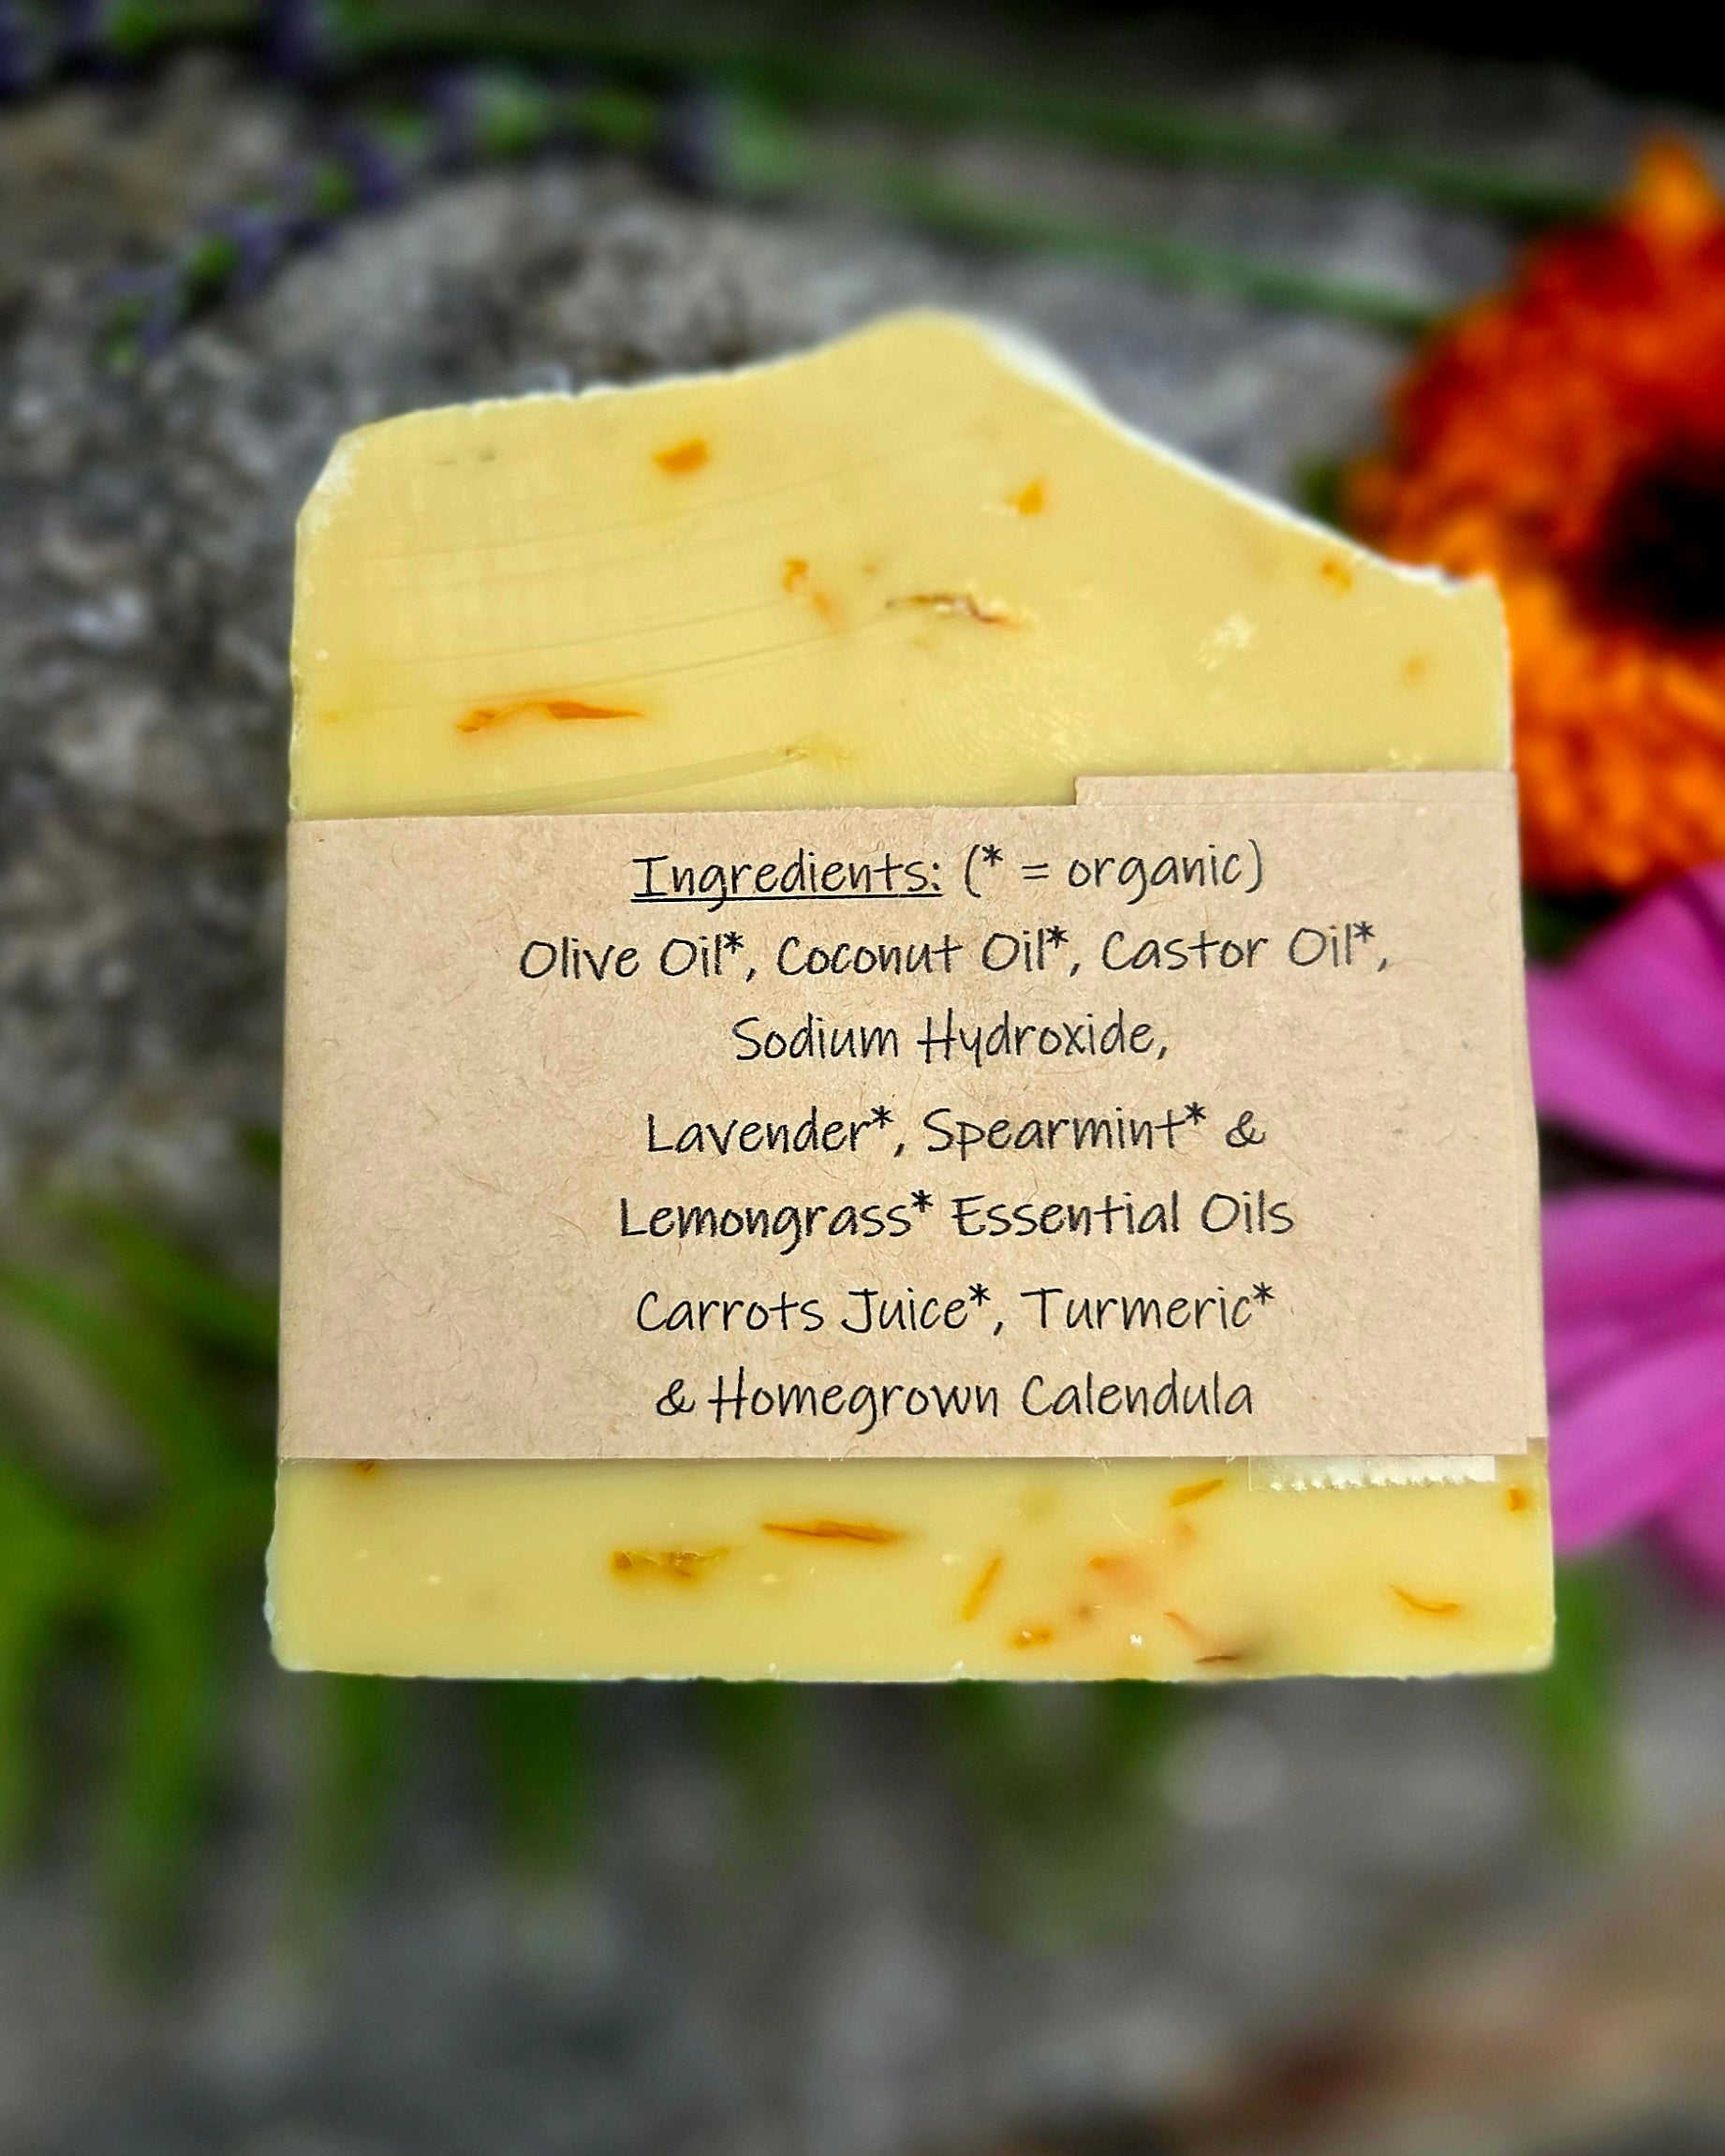 Ingredients: (* = organic)
Olive Oil*, Coconut Oil*, Castor Oil*,
Sodium Hydroxide,
Lavender*, Spearmint* &
Lemongrass* Essential Oils
Carrots Juice*, Turmeric*
& Homegrown Calendula